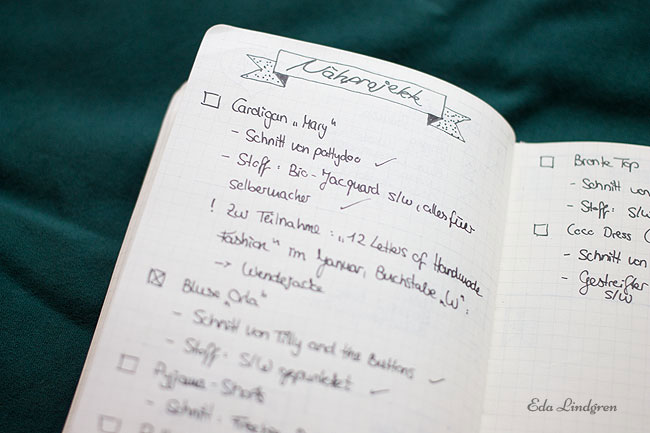 Nähprojekte
Cardigan „Mary"
- Schnitt von pattydoo ✓
- Stoff: Bio-Jacquard s/w, alles für
selbermacher ✓
! zur Teilnahme: „12 Letters of Handmade
Fashion" im Januar, Buchstabe „W":
→ Wendejacke
Bluse „Orla"
- Schnitt von Tilly and the Buttons ✓
- Stoff: s/w gepunktet ✓
Pyjama-Shorts
- Schnitt:
Bronte Top
- Schnitt von
- Stoff: s/w
Coco Dress (
- Schnitt von
- Gestreifter
s/w
Eda Lindgren